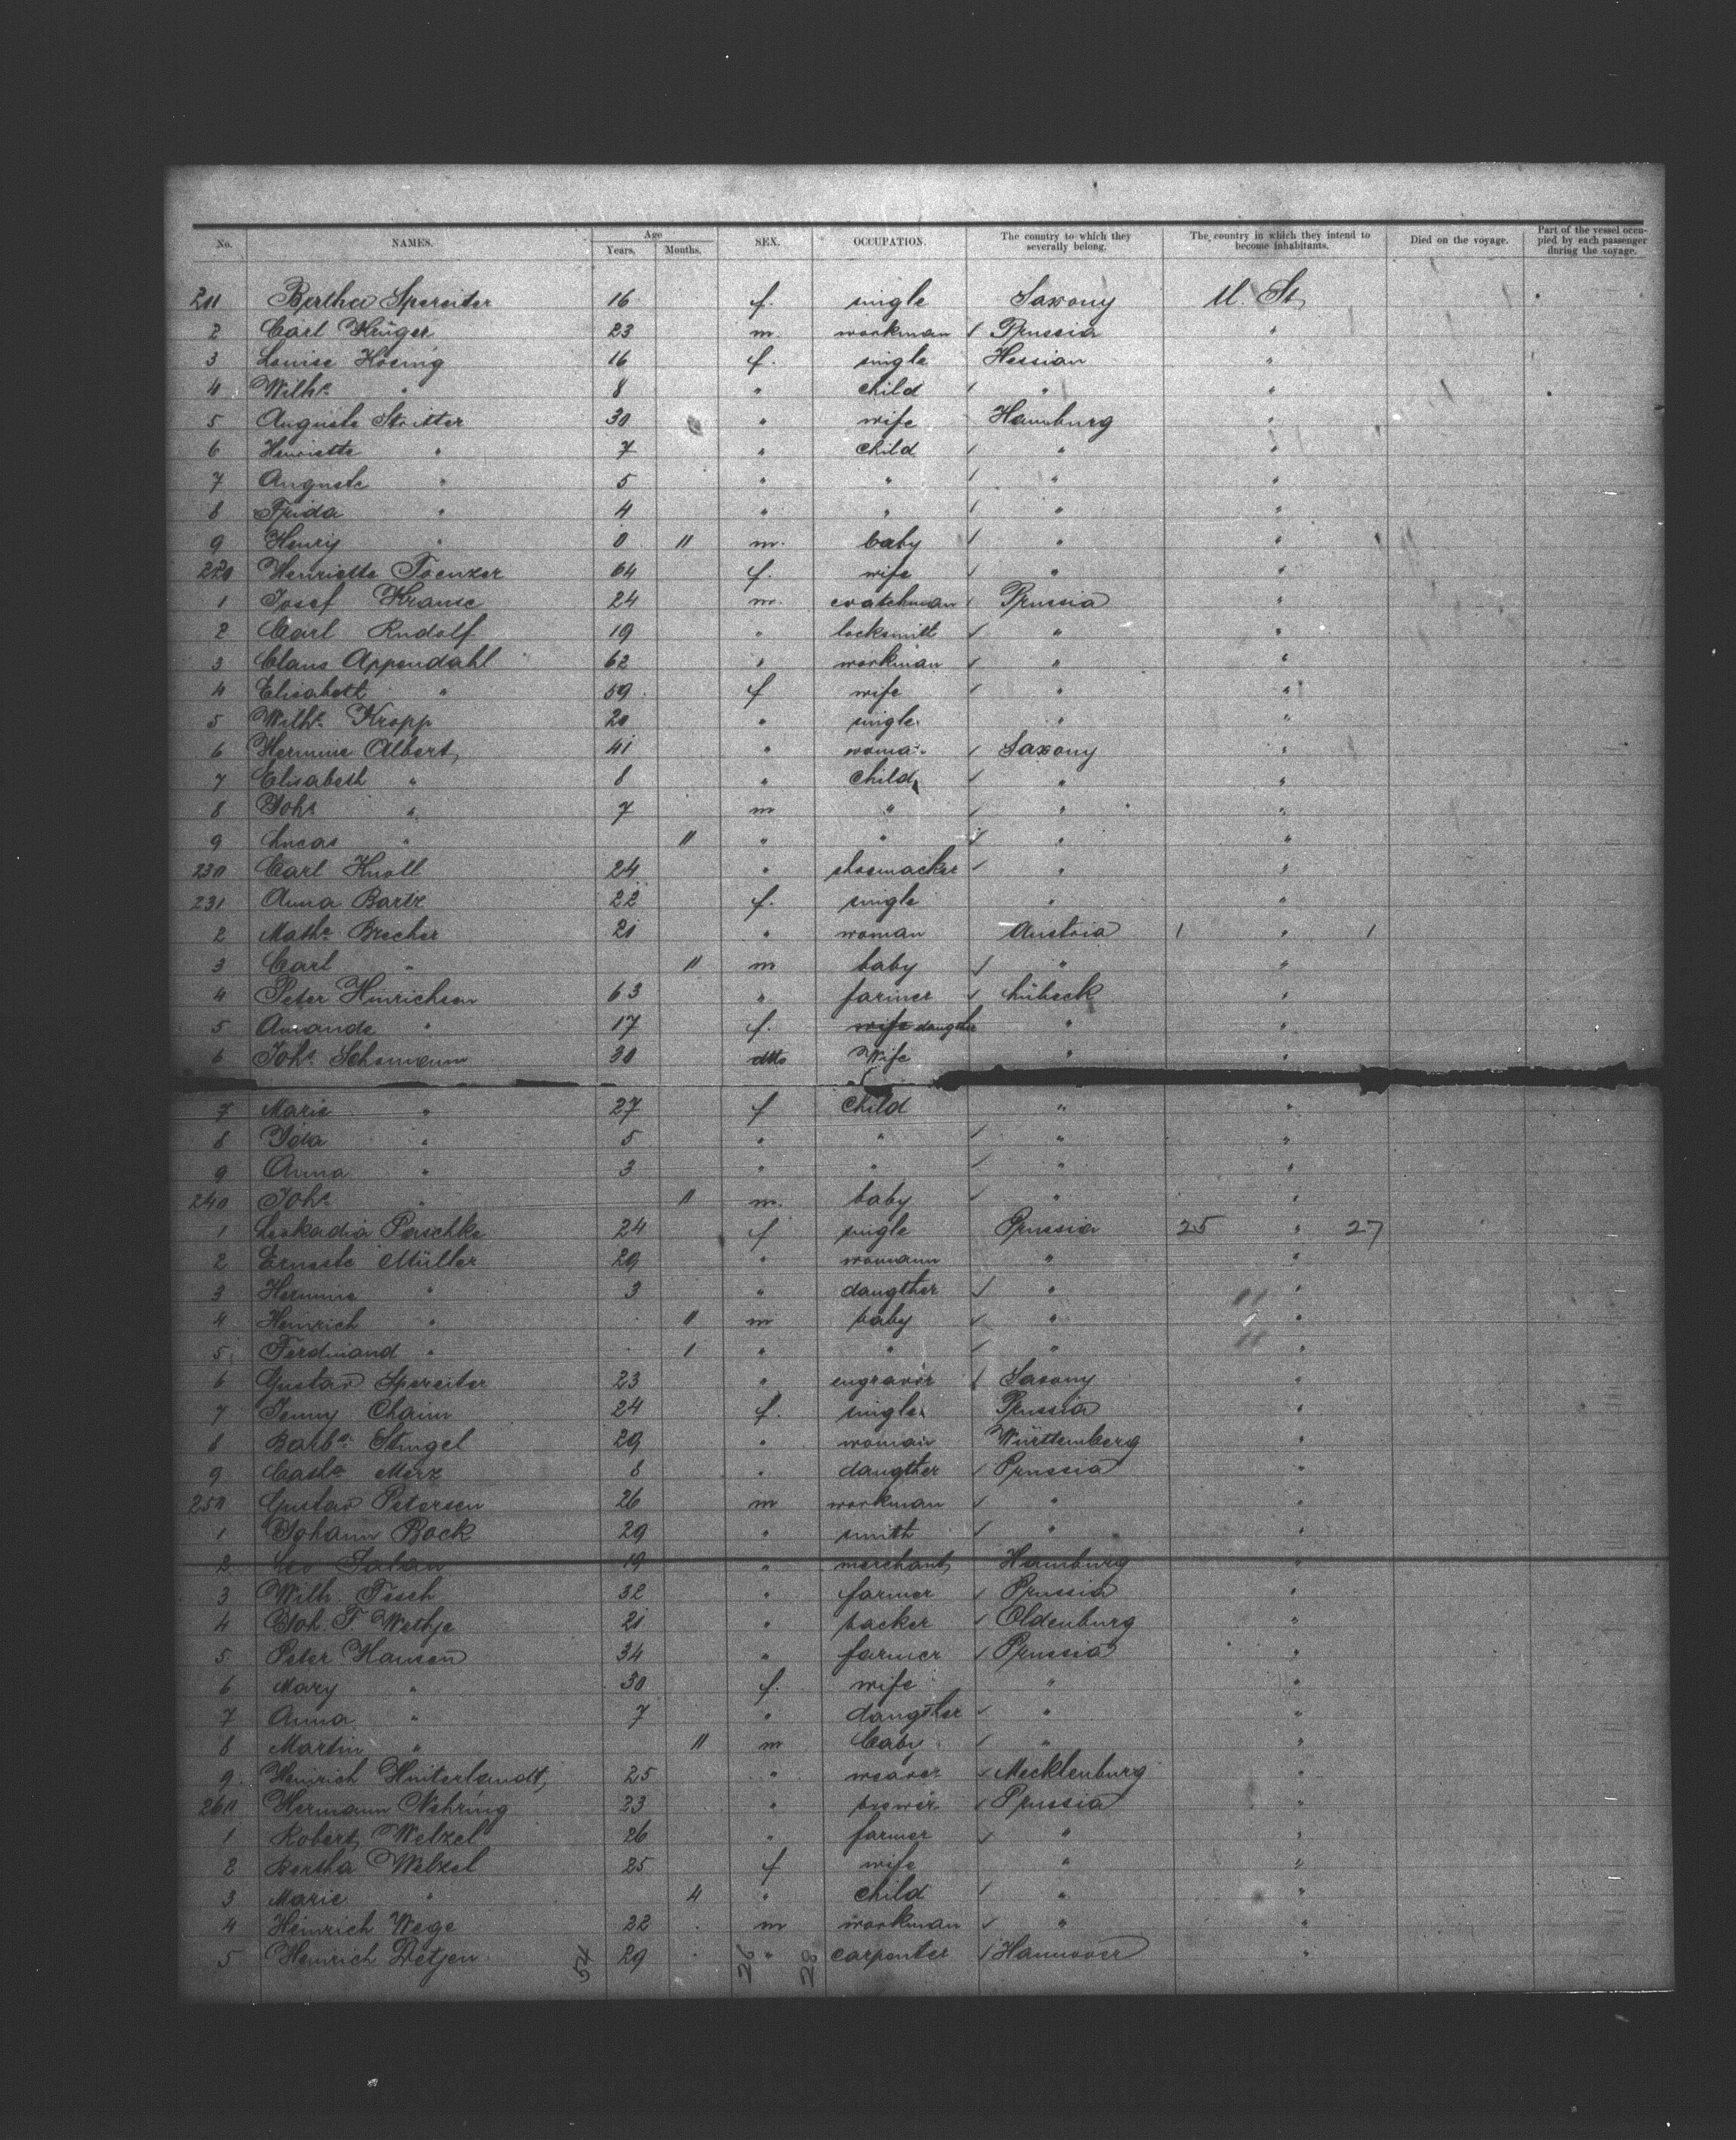 No. NAMES. Age Years. Months. SEX. OCCUPATION. The country to which they severally belong. The country in which they intend to become inhabitants. Died on the voyage. Part of the vessel occupied by each passenger during the voyage.
211 Bertha Spereiter 16 f. single Saxony U. St.
2 Carl Krüger 23 m. workman Prussia "
3 Louise Kosing 16 f. single Hessian "
4 Wilhe " 8 " child " "
5 Auguste Stritter 30 " wife Hamburg "
6 Henriette " 7 " child " "
7 Auguste " 5 " " " "
8 Frida " 4 " " " "
9 Henry " 0 11 m. baby " "
220 Henriette Toenzer 64 f. wife " "
1 Josef Krause 24 m. coatchman Prussia "
2 Carl Rudolf 19 " locksmith " "
3 Claus Appendahl 62 " workman " "
4 Elisabeth " 59 f wife " "
5 Wilhe Kropp 20 " single " "
6 Hermine Albert 41 " woman Saxony "
7 Elisabeth " 8 " child " "
8 Johs " 7 m " " "
9 Lucas " 11 " " " "
230 Carl Knoll 24 " shoemacker " "
231 Anna Bartz 22 f. single " "
2 Mathe Brecher 21 " woman Austria 1 " 1
3 Carl " 11 m baby " "
4 Peter Hinrichsen 63 " farmer Lübeck "
5 Amanda " 17 f. wife daugther " "
6 Johs Schomann 30 dtto Wife " "
7 Marie " 27 f child " "
8 Ida " 5 " " " "
9 Anna " 3 " " " "
240 Johs " 11 m. baby " "
1 Leokadia Paschke 24 f single Prussia 25 " 27
2 Ernste Müller 29 " womann " "
3 Hermine " 3 " daugther " "
4 Heinrich " 11 m baby " "
5 Ferdinand " 1 " " " "
6 Gustav Spereiter 23 " engraver Saxony "
7 Jenny Chaim 24 f. single Prussia "
8 Barba Stingel 29 " woman Württemberg "
9 Catha Merz 8 " daugther Prussia "
250 Gustav Petersen 26 m workman " "
1 Johann Bock 29 " smith " "
2 Leo 19 " merchant Hamburg "
3 Wilh Tesch 32 " farmer Prussia "
4 Joh. F. Wethje 21 " backer Oldenburg "
5 Peter Hansen 34 " farmer Prussia "
6 Mary " 30 f. wife " "
7 Anna " 7 " daugther " "
8 Martin " 11 m baby " "
9 Heinrich Hinterlandt 25 " weaver Mecklenburg "
260 Hermann Nehring 23 " brewer Prussia "
1 Robert Welzel 26 " farmer " "
2 Bertha Welzel 25 f wife " "
3 Marie " 4 " child " "
4 Heinrich Wege 22 m workman " "
5 Heinrich Detjen 29 " carpenter Hannover "
54 26 28